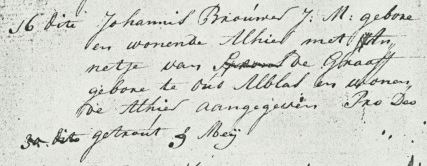 16 dito Johannis Brouwer J: M: gebore
en wonende Alhier met An
netje van de Graaff
gebore te oud Alblas en wonen
de Alhier aangegeven Pro Deo
30 dito getrout 8 Meij